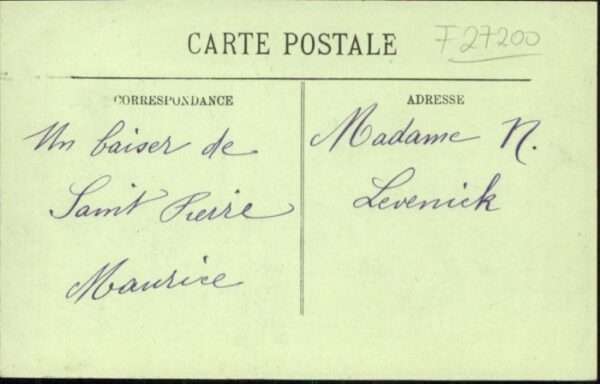 F 27200
CARTE POSTALE
CORRESPONDANCE
Un baiser de
Saint Pierre
Maurice
ADRESSE
Madame N.
Levenick